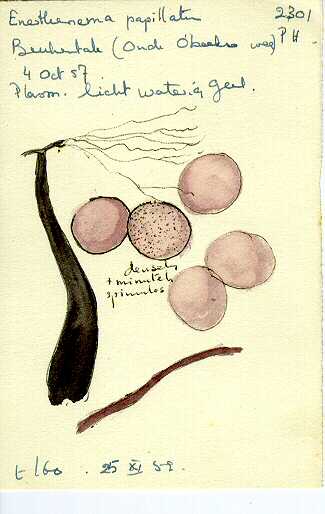 Enesthenema papillatum 2301
Beukentale (Oude Obeekse weg) PH
4 Oct 57.
Plasm. licht waterig geel.
densely
+ minutely
spinulos
t/60 . 25 XI 59.